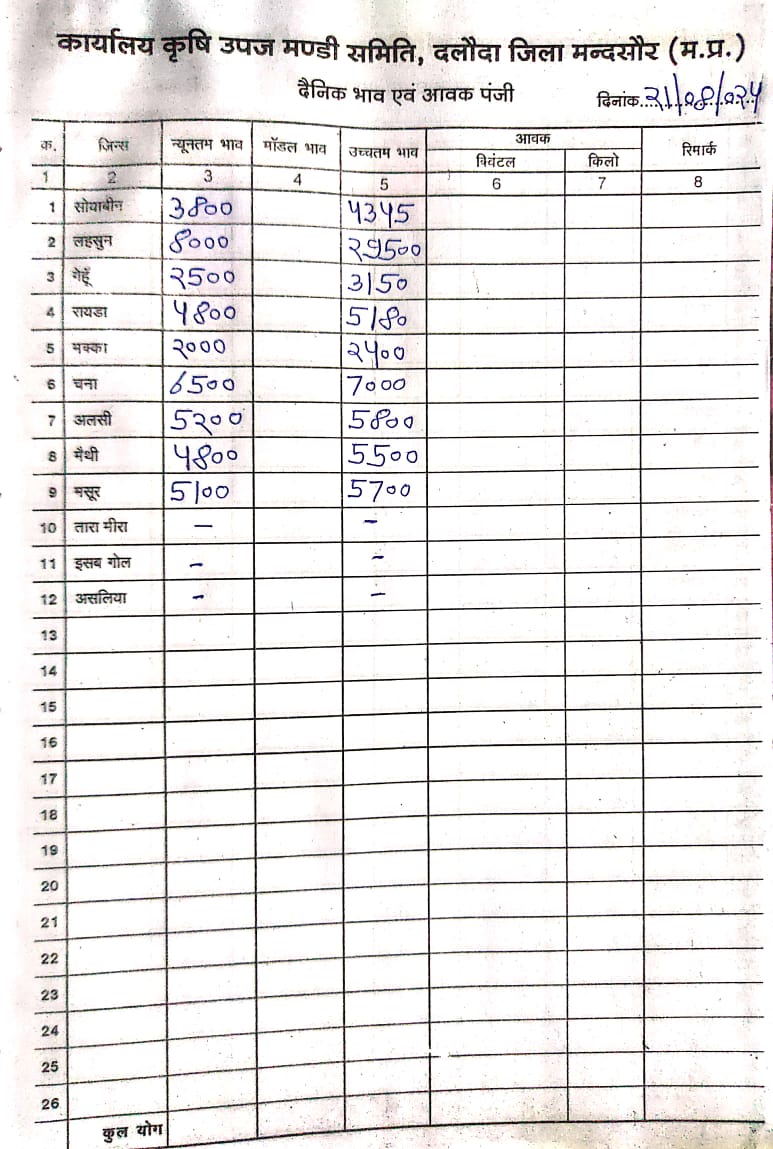 कार्यालय कृषि उपज मण्डी समिति, दलौदा जिला मन्दसौर (म.प्र.)
दैनिक भाव एवं आवक पंजी दिनांक..२1/08/0२4
क. जिन्स न्यूनतम भाव मॉडल भाव उच्चतम भाव आवक रिमार्क
क्विंटल किलो
1 2 3 4 5 6 7 8
1 सोयाबीन 3800 4345
2 लहसुन 8000 २9500
3 गेहूँ २500 3150
4 रायडा 4800 5180
5 मक्का २000 २400
6 चना 6500 7000
7 अलसी 5२00 5800
8 मैथी 4800 5500
9 मसूर 5100 5700
10 तारा मीरा – –
11 इसब गोल – –
12 असलिया – –
13
14
15
16
17
18
19
20
21
22
23
24
25
26
कुल योग